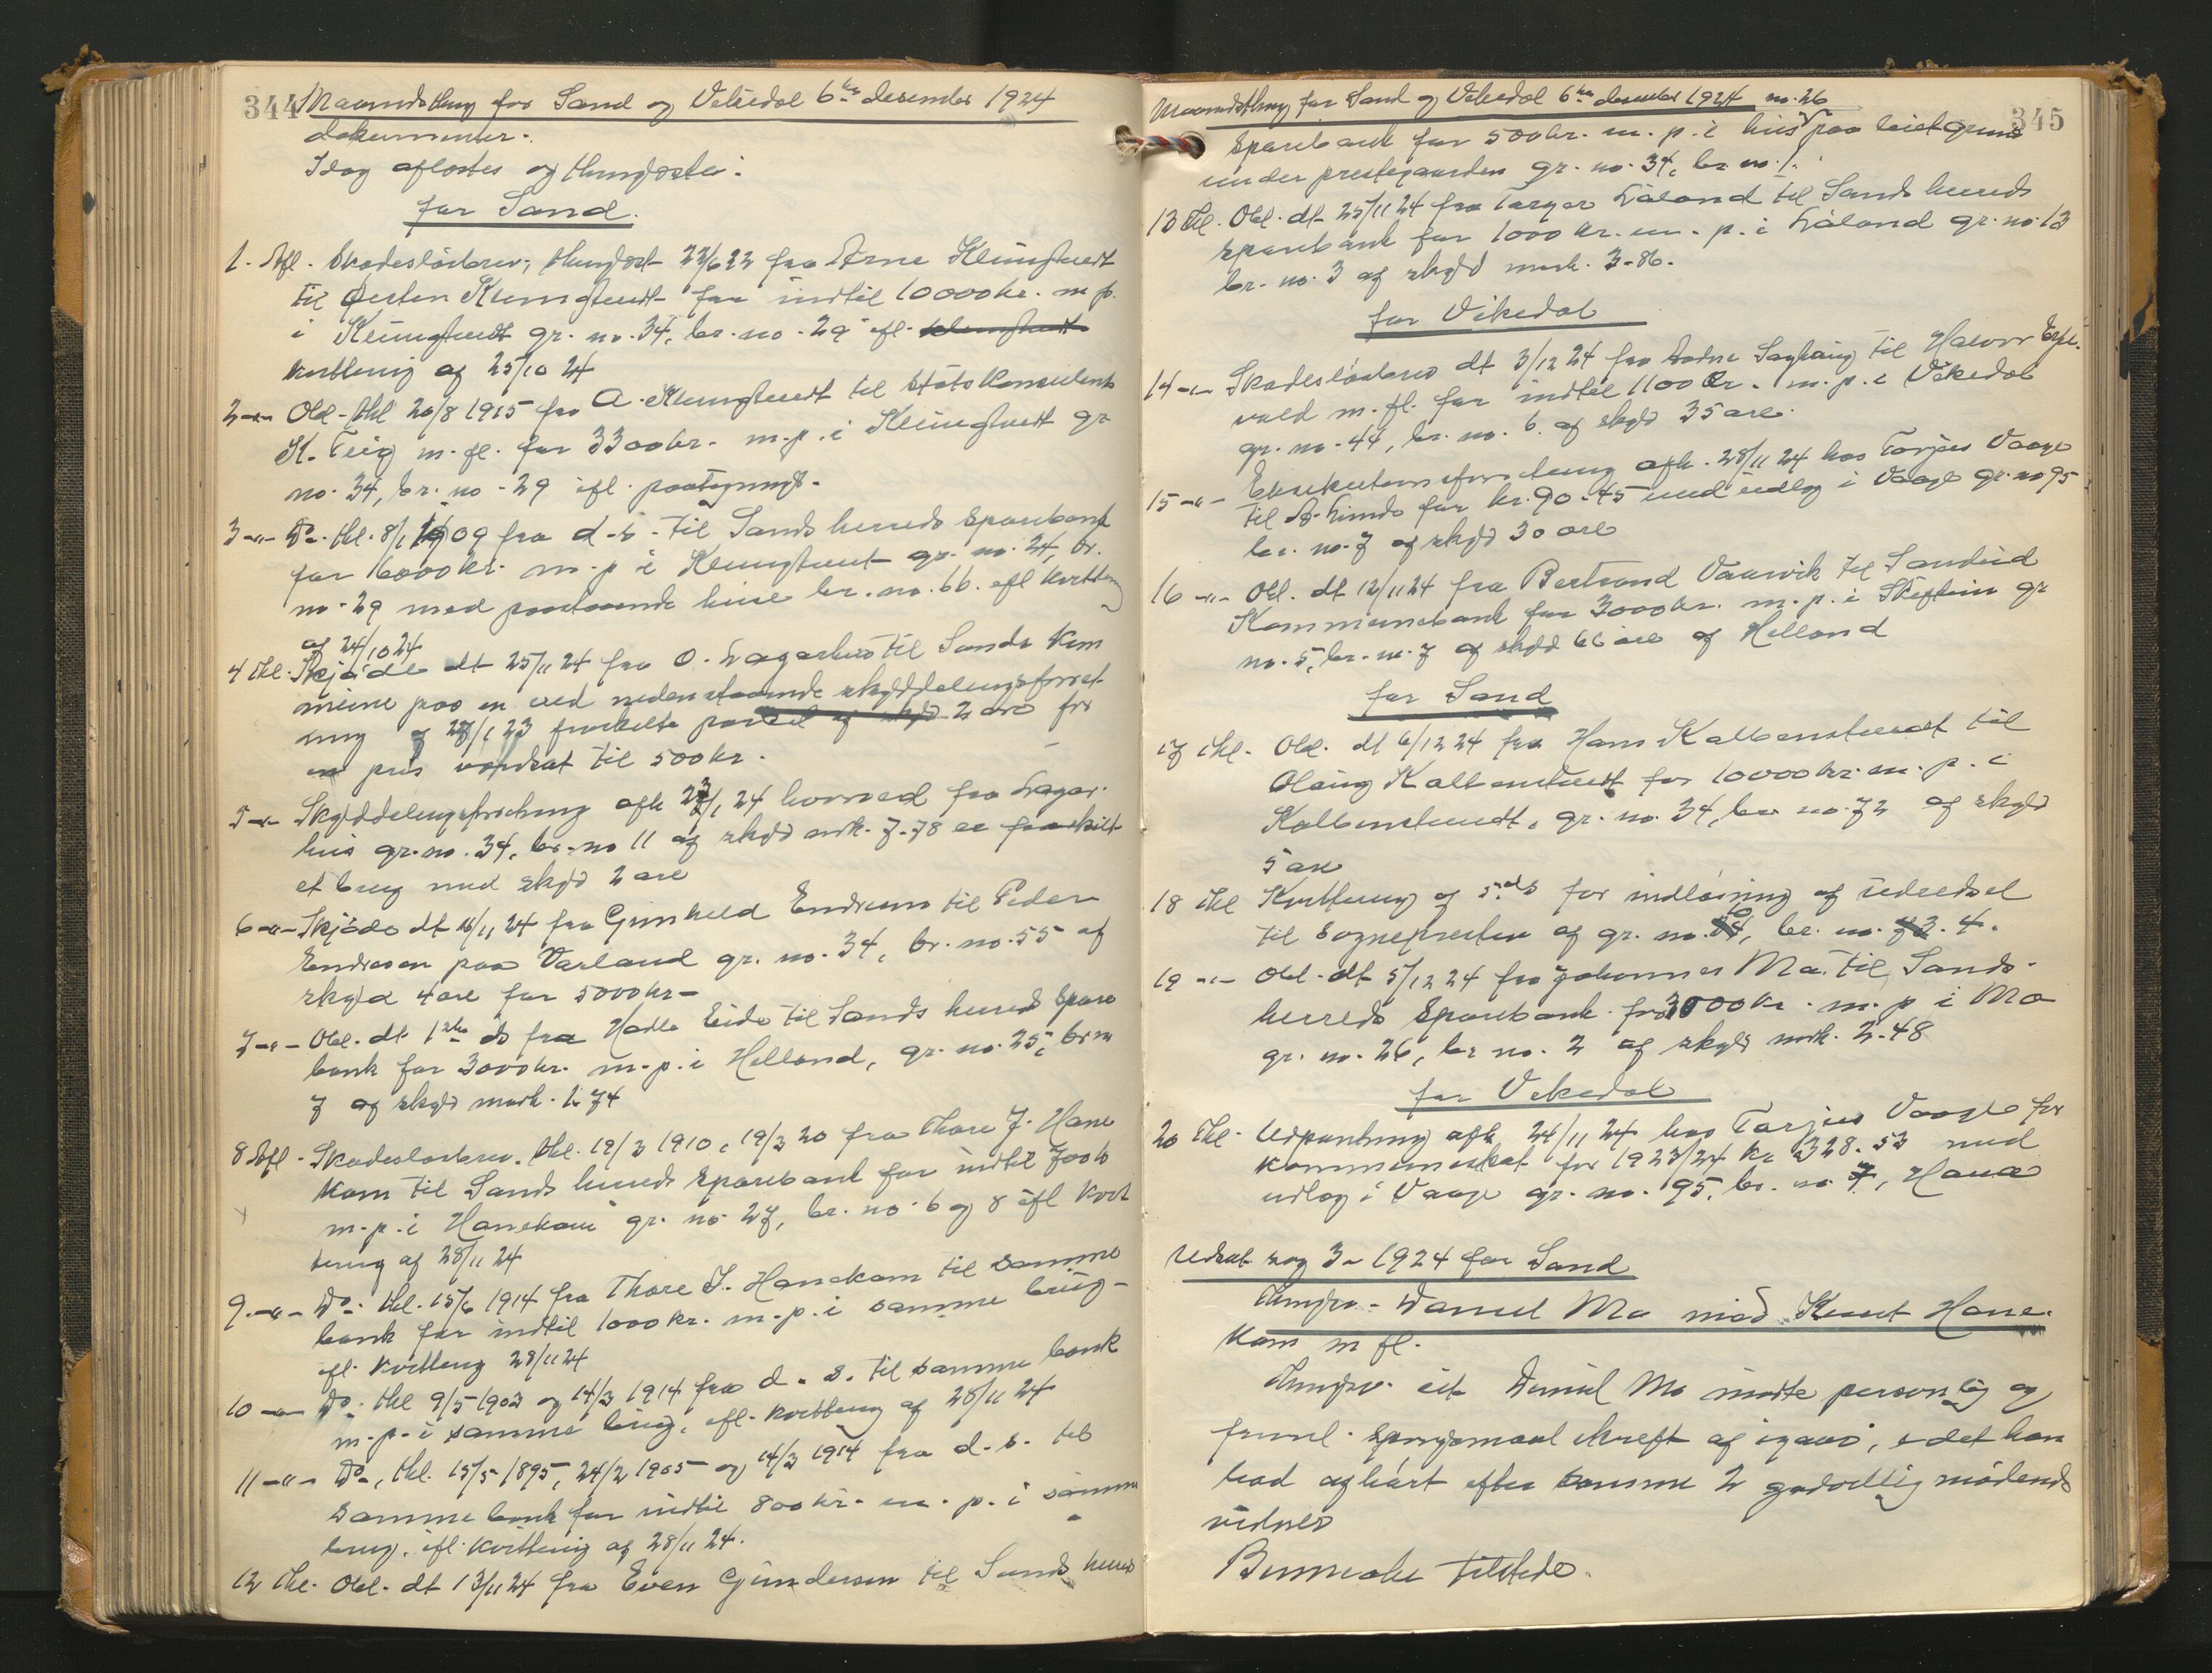 344 Maanedsthing for Sand og Vikedal 6te desember 1924
dokumenter.
Idag aflæstes og thinglæstes:
for Sand.
1. Afl. Skadesløsbrev, thinglæst 22/6 22 fra Arne Klungtvedt
til Østen Klungtvedt for indtil 10000 kr. m. p.
i Klungtvedt gr. no. 34, br. no. 29 ifl.
kvittering af 25/10 24
2 -"- Obl. thl 20/8 1915 fra A. Klungtvedt til Statskonsulent
K. Teig m. fl. for 3300 kr. m. p. i Klungtvedt gr
no. 34, br. no. 29 ifl. paategning.
3 -"- Do. thl. 8/1 1909 fra d. s. til Sands herreds Sparebank
for 6000 kr. m. p. i Klungtvedt gr. no. 24, br.
no. 29 med paastaaende huse br. no. 66. ifl kvittering
af 24/10 24
4 thl. Skjøde dt 25/11 24 fra O. Lagarhus til Sands Kom
mune paa en ved nedenstaaende skylddelingsforret
ning af 27/1 23 fraskilte parsel af skyld 2 øre for
en pris værdsat til 500 kr.
5 -"- Skylddelingsforretning afh 27/1 24 hvorved fra Lagar-
hus gr. no. 34, br. no 11 af skyld mrk. 7-78 er fraskilt
et brug med skyld 2 øre
6 -"- Skjøde dt 16/11 24 fra Gunhild Endresen til Peder
Endresen paa Varland gr. no. 34, br. no. 55 af
skyld 4 øre for 5000 kr-
7 -"- Obl. dt 1ste ds fra Hadle Eide til Sands herreds Spare
bank for 3000 kr. m. p. i Helland, gr. no. 25, br no
7 af skyld mark. 1.74
8 Afl. Skadesløsbrev. thl. 19/3 1910, 19/3 20 fra Thore J. Hane
kam til Sands herreds Sparebank for indtil 700 kr
m. p. i Hanekam gr. no. 27, br. no. 6 og 8 ifl kvit
tering af 28/11 24
9. -"- Do. thl. 15/6 1914 fra Thore J. Hanekam til samme
bank for indtil 1000 kr. m. p. i samme brug-
ifl. kvittering 28/11 24
10 -"- Do. thl 9/5 1903 og 14/3 1914 fra d. s. til samme bank
m. p. i samme brug, ifl. kvittering af 28/11 24
11 -"- Do., thl. 15/5 1895, 24/2 1905 og 14/3 1914 fra d. s. til
samme bank for indtil 800 kr. m. p. i samme
brug, ifl. kvittering af 28/11 24.
12 thl. Obl. dt 13/11 24 fra Even Gundersen til Sands herreds
Maanedsthing for Sand og Vikedal 6te desember 1924 no. 26 345
Sparebank for 500 kr. m. p. i hus paa leiet grund
under prestegaarden gr. no. 34, br. no. 1.
13 thl. Obl. dt 25/11 24 fra Torger Låland til Sands herreds
sparebank for 1000 kr. m. p. i Låland gr. no. 13
br. no. 3 af skyld mark. 3-86.
for Vikedal
14 -"- Skadesløsbrev dt 3/12 24 fra Sagbaug til Halvor
vald m. fl. for indtil 1100 kr. m. p. i Vikedal
gr. no. 44, br. no. 6. af skyld 35 øre.
15 -"- Eksekutionsforretning afh. 28/11 24 hos Torjus Vaage
til A. Kinde for kr. 90-45 med udlæg i Vaage gr. no 95
br. no. 7 af skyld 30 øre
16 -"- Obl. dt 12/11 24 fra Bertrand Vaarvik til Sandeid
Kommunebank for 3000 kr. m. p. i gr
no. 5, br. no. 7 af skyld 66 øre af Helland
for Sand
17 thl. Obl. dt 6/12 24 fra Hans Kalbenstvedt til
Olaug Kalbenstvedt for 10000 kr. m. p. i
Kalbenstvedt, gr. no. 34, br. no. 72 af skyld
5 øre
18 thl Kvittering af 5. ds for indløsning af
til Sognepresten af gr. no. , br. no. 4.
19 -"- Obl. dt 5/12 24 fra Johannes Mo til Sands
herreds Sparebank for 3000 kr. m. p. i Mo
gr. no. 26, br no. 2 af skyld mrk. 2.48
for Vikedal
20 thl. Udpantning afh 24/11 24 hos Torjus Vaage for
kommuneskat for 1923/24 kr. 328.53 med
udlæg i Vaage gr. no. 95, br. no. 7,
Udsat sag 3- 1924 for Sand
Daniel Mo mod Knut Hane-
kam m fl.
Daniel Mo mødte personlig og
freml. spørgsmaal skreft af igaar, idet han
bad afhørt efter samme 2 godvillig mødende
vidner
tilstede.